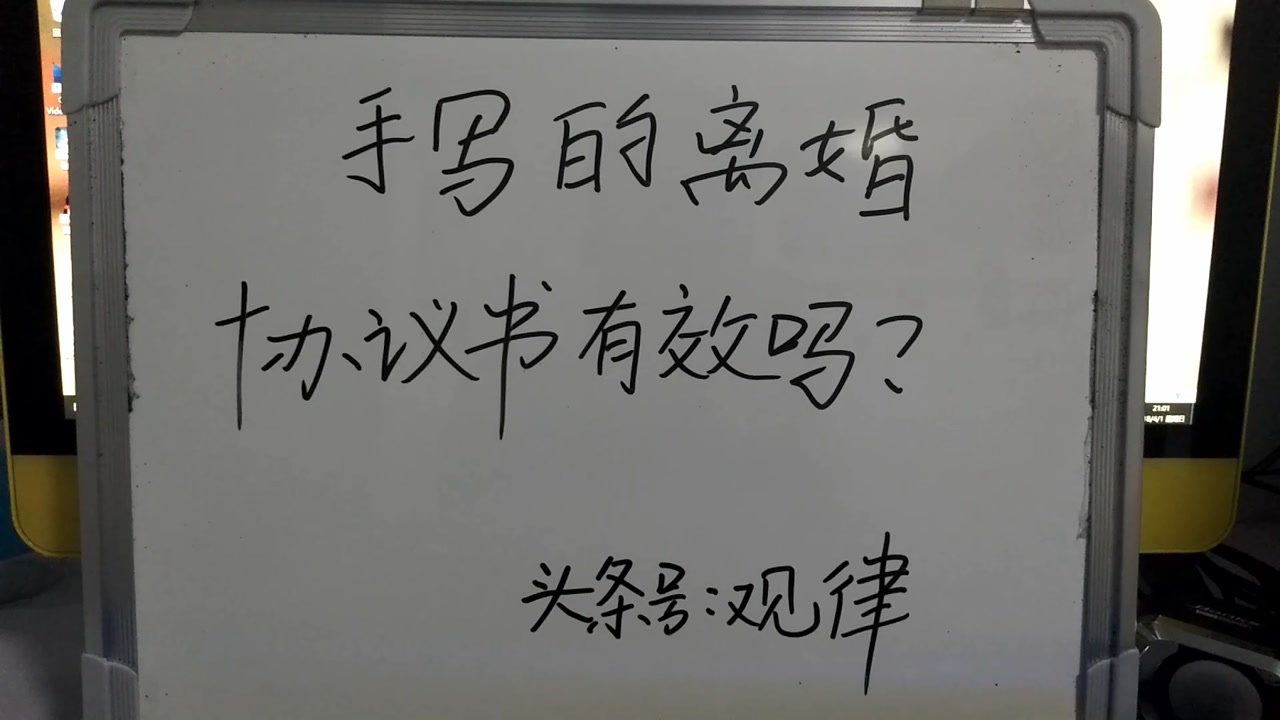 手写的离婚
协议书有效吗?
头条号:观律
21:01